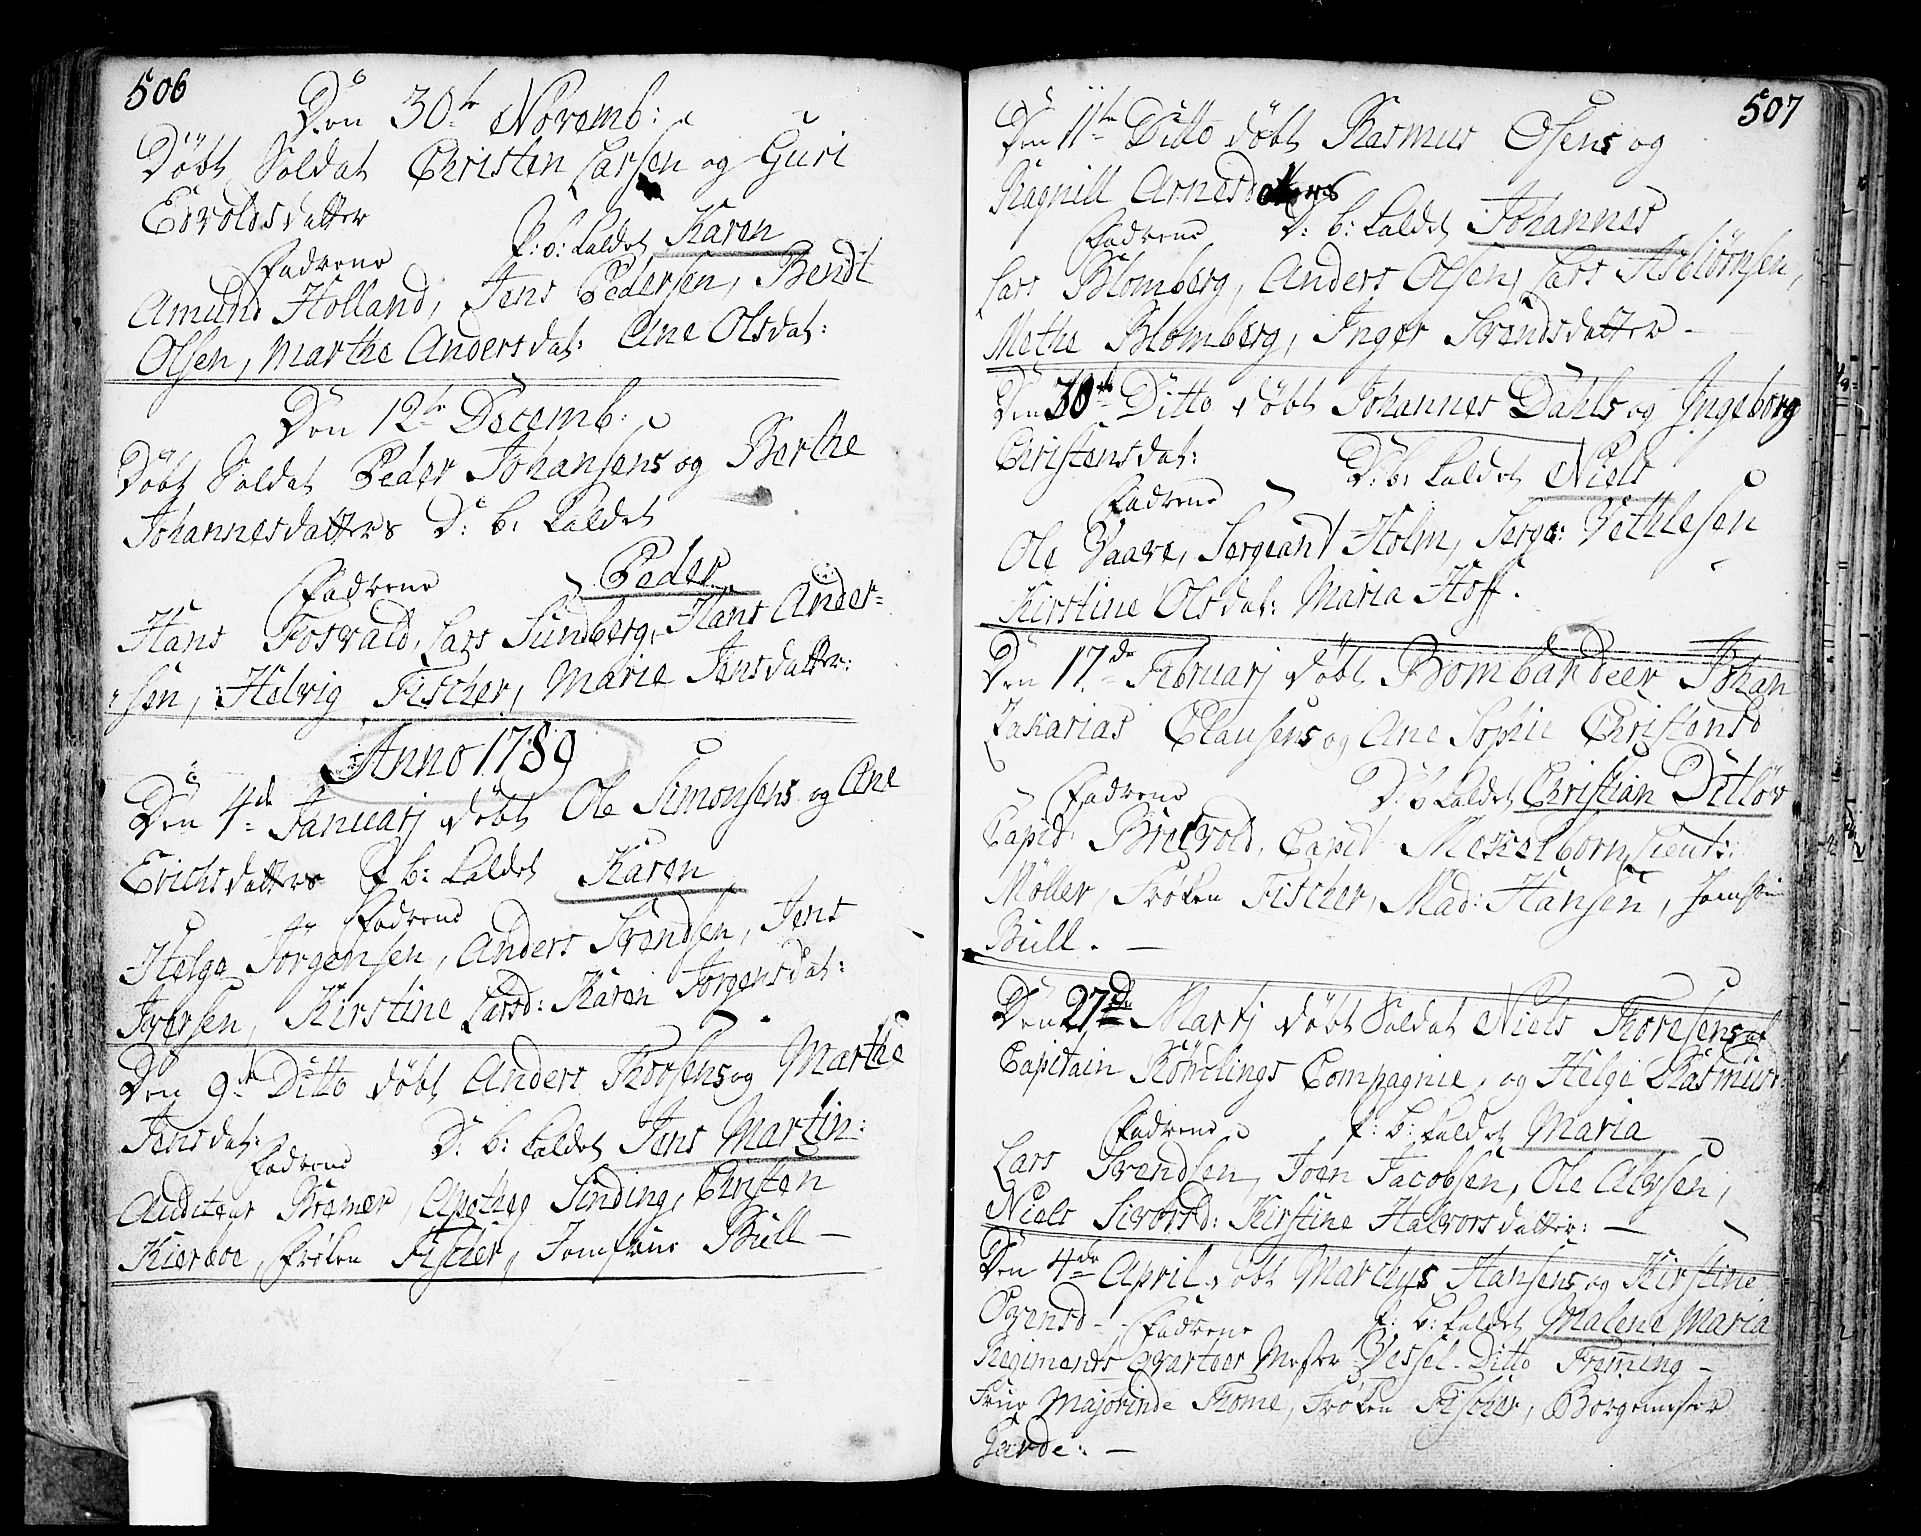 506
Den 30te Novemb:
Döbt Soldat Christen Larsen og Guri
Eevoldsdatter
P: b: kaldet Karen
Fadrene
Amund Holland, Jens Pedersen, Bendt
Olsen, Marthe Andersdat: Ane Olsdat:
Den 12te Decemb:
Döbt Soldat Peder Johansens og Berthe
Johannesdatters D: b: kaldet
Peder
Fadrene
Hans Fosvald, Lars Sundberg, Hans Ander=
sen, Helvig Fischer, Marie Jensdatter:
Anno 1789
Den 4de Januarj döbt Ole Simonsens og Ane
Erichsdatters P b: kaldet Karen
Fadrene
Helge Jörgensen, Anders Svendsen, Jens
Iversen, Kirstine Larsd: Karen Jörgensdat:
Den 9de Ditto döbt Anders Thorsens og Marthe
Jensdat: D: b: kaldet Jens Martin:
Fadrene
Auditeur Bremer, Apotheg Sinding, Christen
Kierboe, Fröken Fischer, Jomfrue Bull —
507
Den 11te Ditto döbt Rasmus Olsens og
Ragnill Arnesdatters
D: b: kaldet Johannes
Fadrene
Lars Blomberg, Anders Olsen, Lars Asbiörnsen,
Methe Blomberg, Inger Svendsdatter —
Den 30te Ditto döbt Johannes Dahls og Ingeborg
Christensdat: D: b: kaldet Niels
Fadrene
Ole Vaare, Sergeant Holm, Serge: Vethlesen
Kirstine Olsdat: Maria Hoff.
Den 17de Februarj döbt Bombardeer Johan
Zakarias Clausens og Ane Sophie Christensd
D: b kaldet Christian Ditlöv
Fadrene
Capit: Bredvold, Capit Mekelborn, Lieut:
Möller, Fröken Fischer, Mad: Hansen, Jomfrue
Bull. —
Den 27de Martj döbt Soldat Niels Thoresens af
Capitain Röhrlings Compagnie, og Helge Rasmus:
P: b: kaldet Maria
Fadrene
Lars Svendsen, Joen Jacobsen, Ole Alvsen,
Niels Sivorsd: Kirstine Halvorsdatter: —
Den 4de April döbt Marchys Hansens og Kirstine
Ovensd — P: b: kaldet Malene Maria
Fadrene
Regiments Qvarteer Mester Vessel. Ditto Fremming —
Frue Majorinde Thome, Fröken Fischer, Borgemester
Garde: —